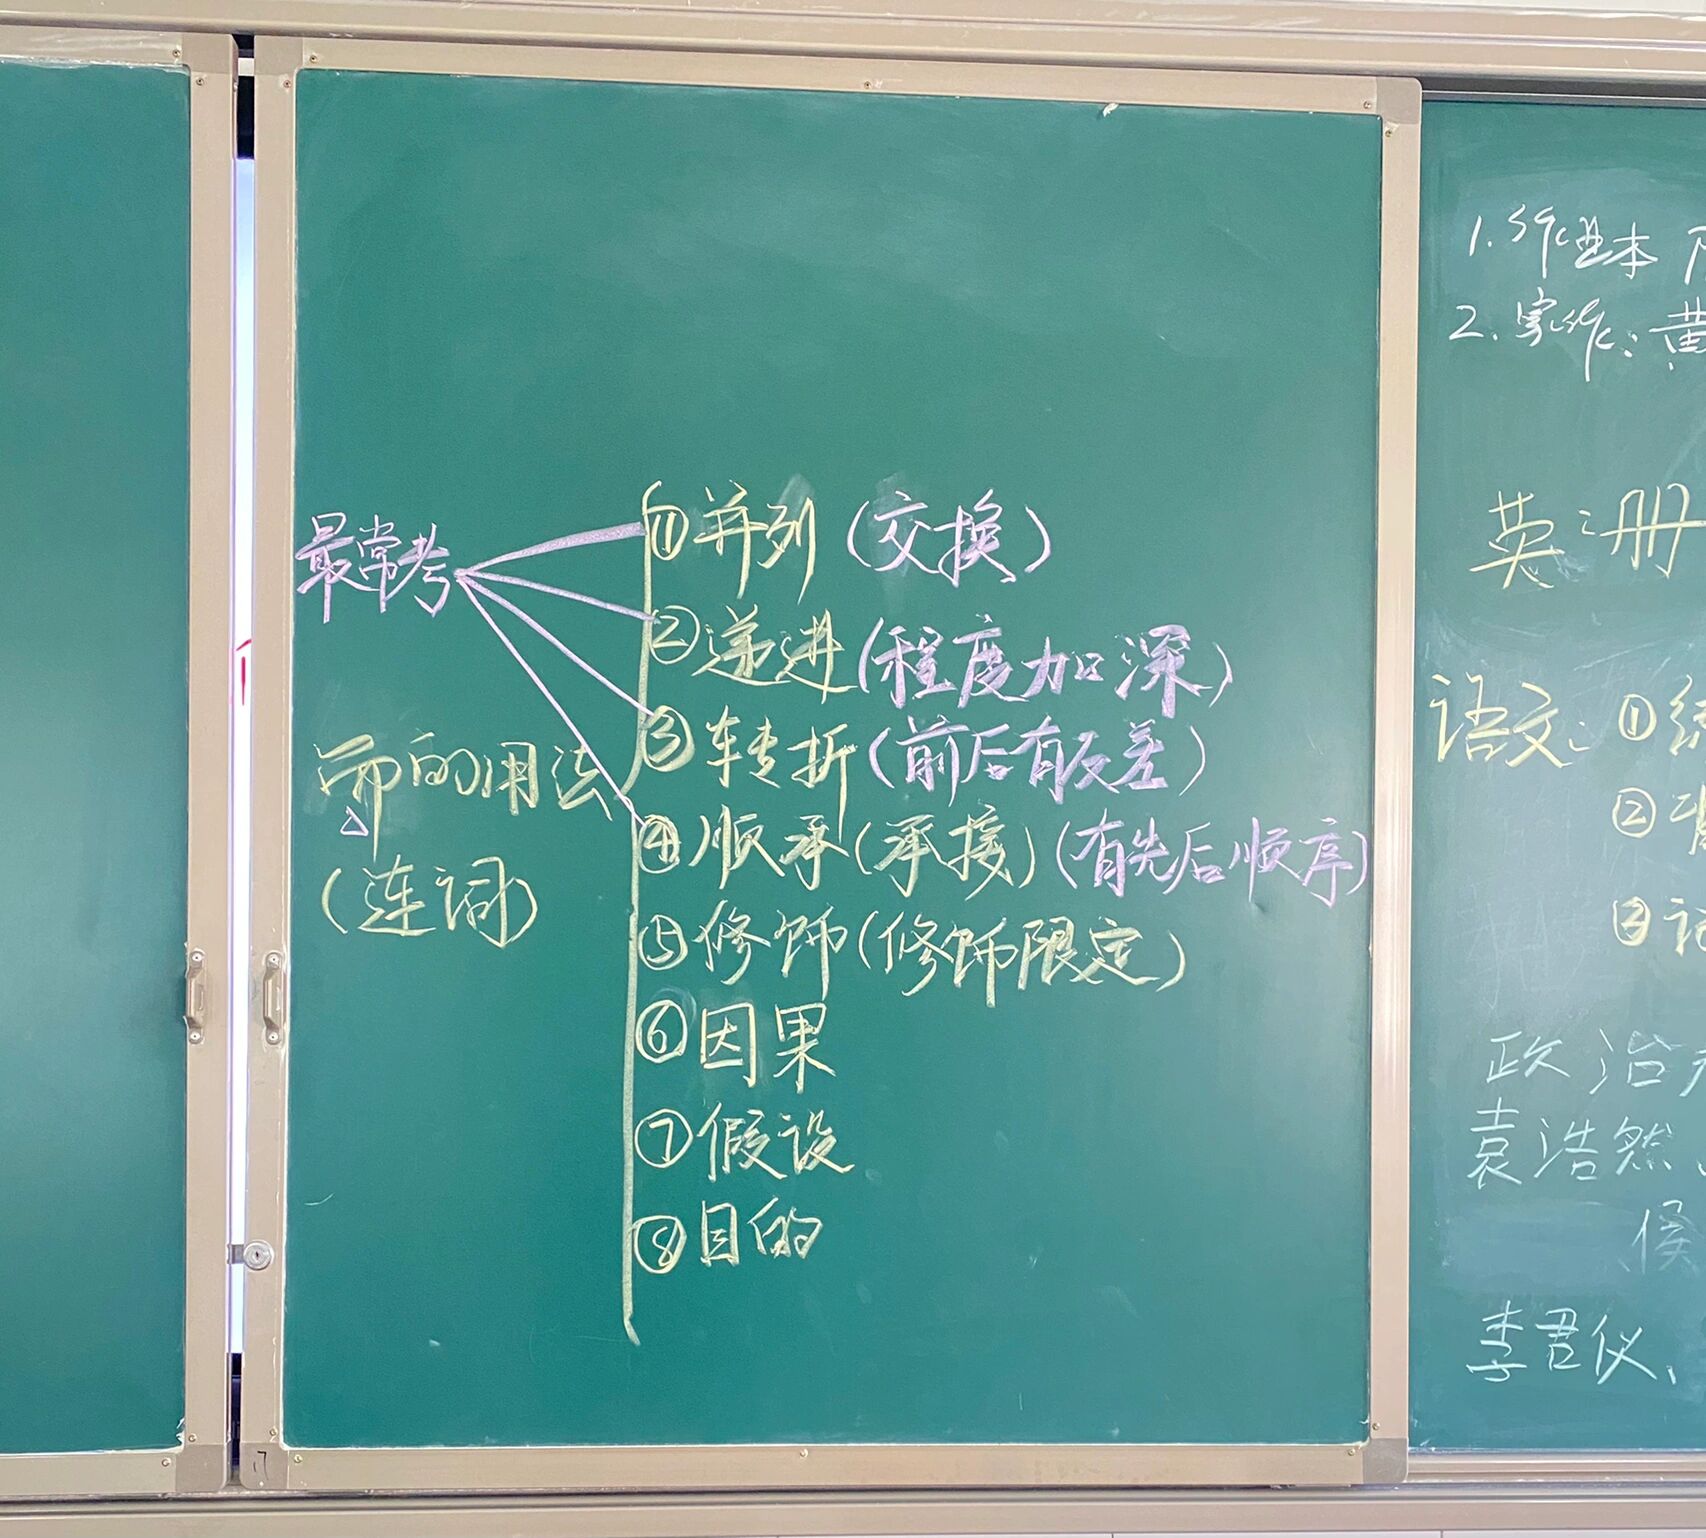 最常考
而的用法
(连词)
①并列(交换)
②递进(程度加深)
③转折(前后有反差)
④顺承(承接)(有先后顺序)
⑤修饰(修饰限定)
⑥因果
⑦假设
⑧目的
1.作业本
2.家作:黄
英:册
语文:①
②
③
政治
袁浩然、
侯
李君仪、